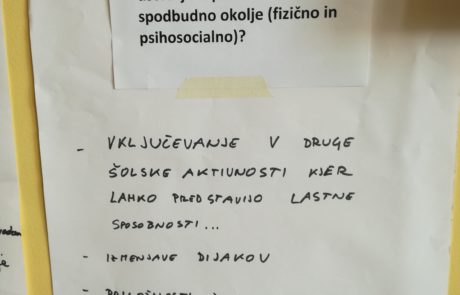 spodbudno okolje (fizično in
psihosocialno)?
- VKLJUČEVANJE V DRUGE
ŠOLSKE AKTIVNOSTI KJER
LAHKO PREDSTAVIJO LASTNE
SPOSOBNOSTI...
- IZMENJAVE DIJAKOV